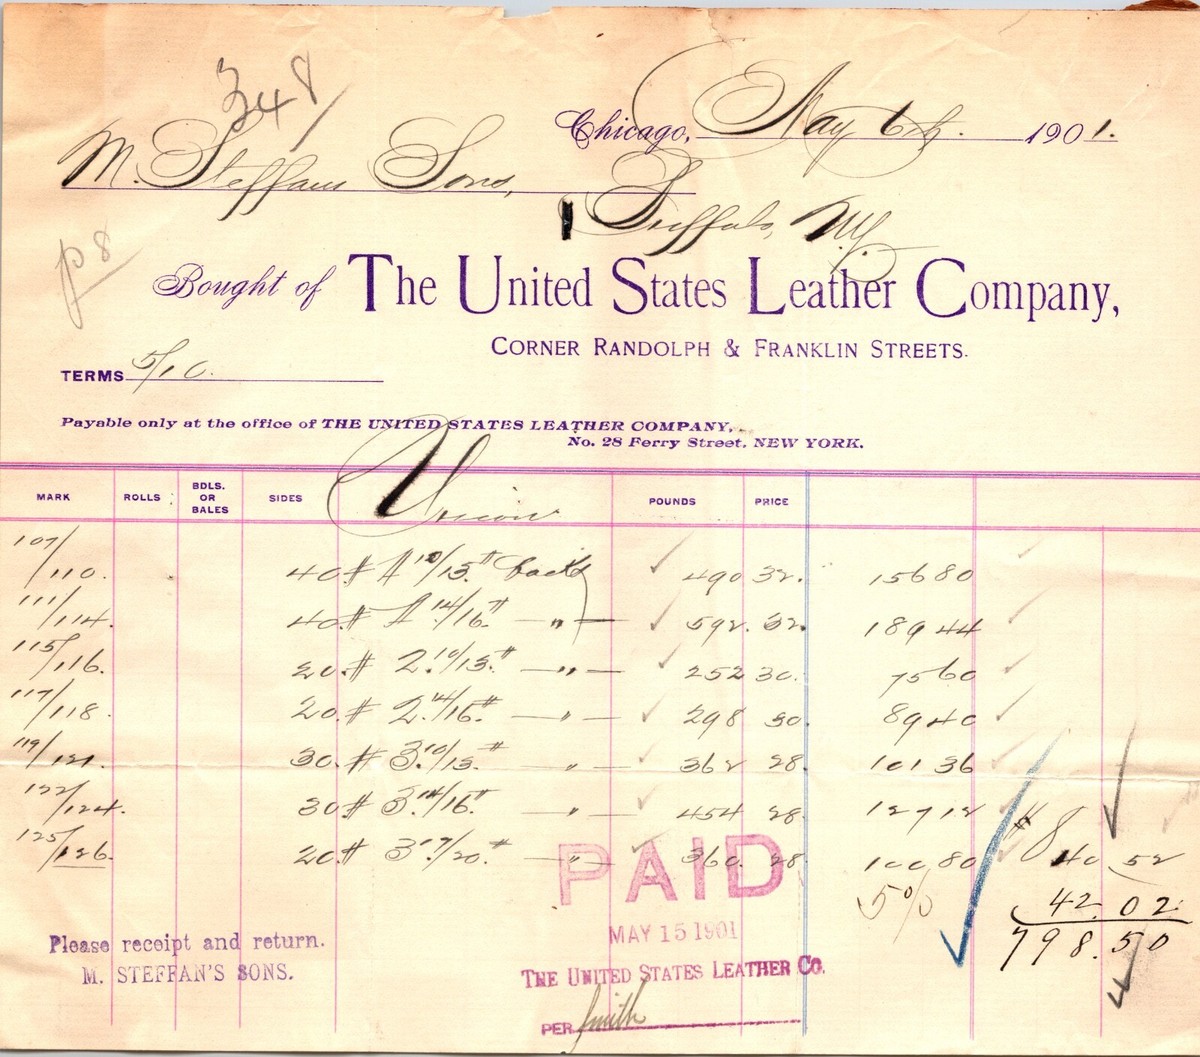 348
Chicago, May 6th. 1901.
M. Steffans Sons,
Buffalo, N.Y.
p 8
Bought of The United States Leather Company,
CORNER RANDOLPH & FRANKLIN STREETS.
TERMS 5/10.
Payable only at the office of THE UNITED STATES LEATHER COMPANY,
No. 28 Ferry Street, NEW YORK.
MARK ROLLS BDLS. OR BALES SIDES Union POUNDS PRICE
107/110. 40 # A 10/13 # backs 490 32. 156 80
111/114. 40 # A 14/16 # — " — 592. 32. 189 44
115/116. 20 # 2. 10/13. # — " — 252 30. 75 60
117/118. 20. # 2. 14/16. # — " — 298 30. 89 40
119/121. 30. # 3. 10/13. # " 362 28. 101 36
122/124. 30 # 3. 14/16. # " 454 28. 127 12
125/126. 20 # 3 17/20. # — " — 360. 28 100 80 $840 52
5% 42.02
798.50
PAID
MAY 15 1901
THE UNITED STATES LEATHER CO.
PER Smith
Please receipt and return.
M. STEFFAN'S SONS.